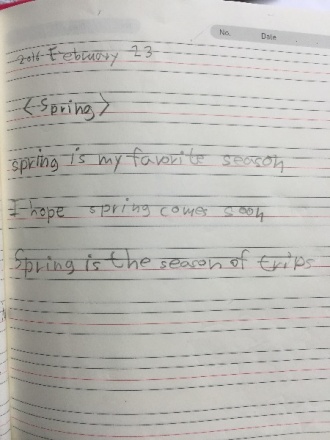 No. Date
2016 February 23
<Spring>
spring is my favorite season
I hope spring comes soon
Spring is the season of trips